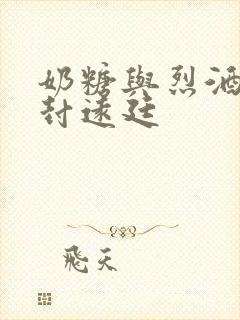 奶糖與烈酒
封遠廷
飛天